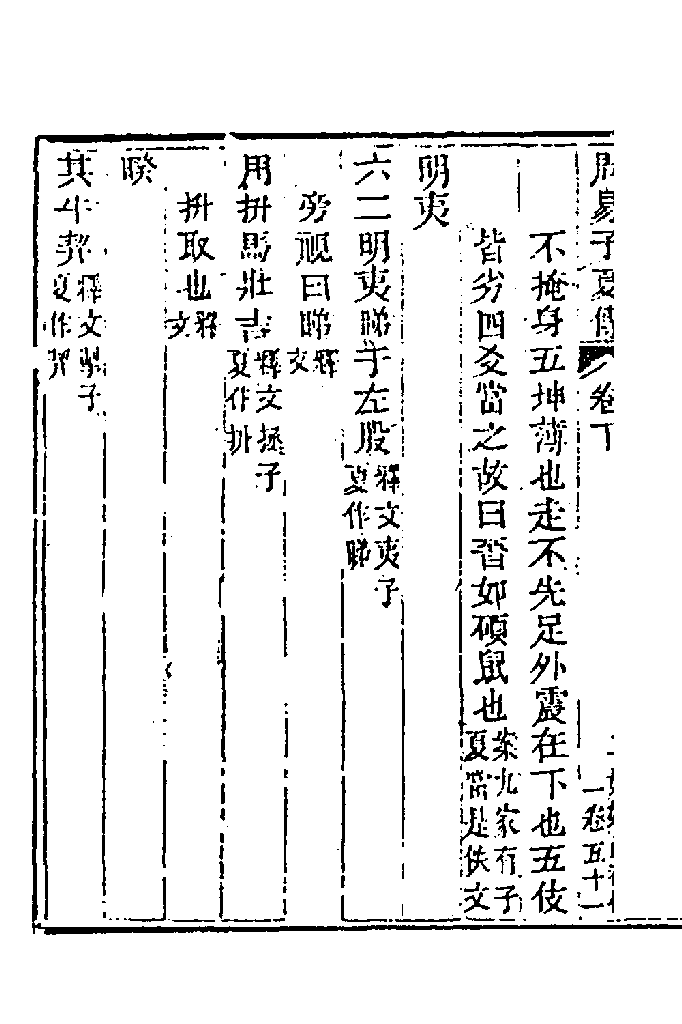 周易子夏傳 卷下
一卷五十一
不掩身五坤薄也走不先足外震在下也五伎
皆劣四爻當之故曰晉如碩鼠也案九家有子夏當是佚文
明夷
六二明夷睇于左股釋文夷子夏作睇
旁視曰睇釋文
用拚馬壯吉釋文拯子夏作拚
拚取也釋文
睽
其牛契釋文掣子夏作契